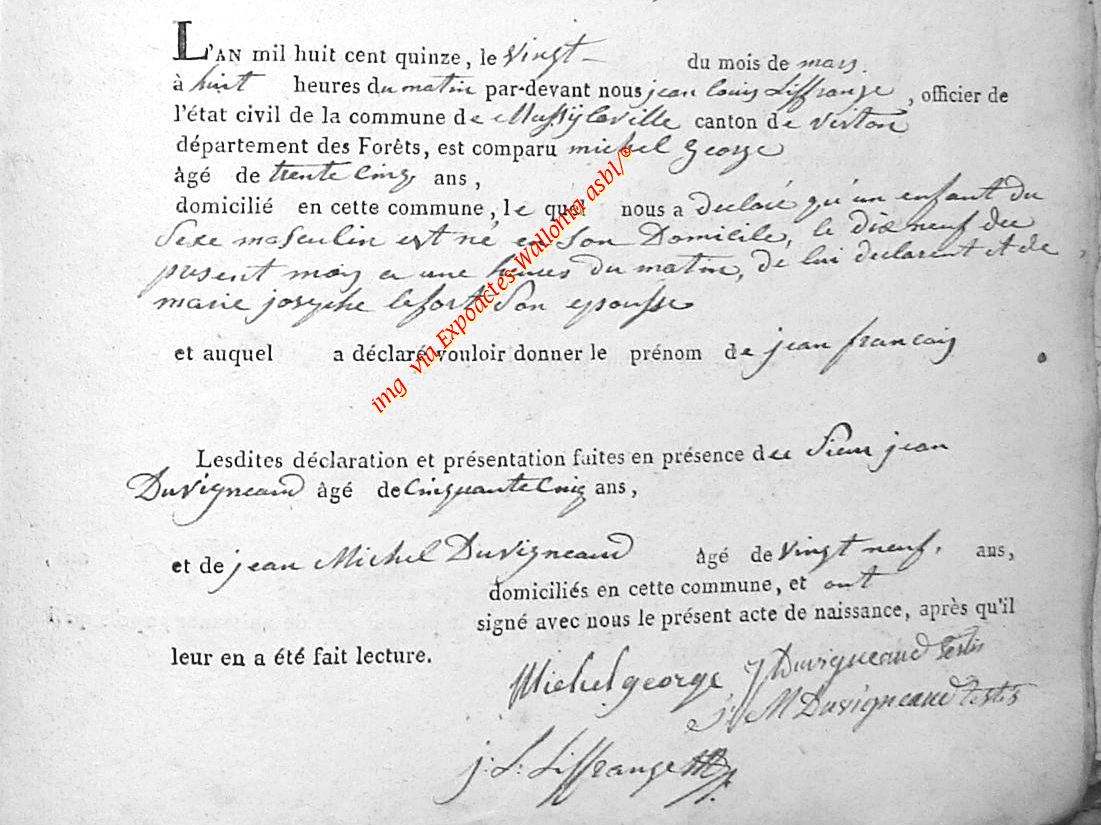 L'AN mil huit cent quinze, le vingt — du mois de mars.
à huit heures du matin par-devant nous jean louis Liffrange, officier de
l'état civil de la commune de Mussylaville canton de virton
département des Forêts, est comparu michel George
âgé de trente Cinq ans,
domicilié en cette commune, le quel nous a declaré qu'un enfant du
Sexe masculin est né en Son Domicile, le dix neuf du
present mois a une heures du matin, de lui declarent et de
marie josephe lefort Son epousse
et auquel a déclaré vouloir donner le prénom de jean francois
Lesdites déclaration et présentation faites en présence de Sieur jean
Duvigneaud âgé de Cinquante Cinq ans,
et de jean Michel Duvigneaud âgé de vingt neuf. ans,
domiciliés en cette commune, et ont
signé avec nous le présent acte de naissance, après qu'il
leur en a été fait lecture.
Michel george J Duvigneaud testis
J. M Duvigneaud testis
j. L. Liffrange
img via Expoactes-Wallonia asbl/©